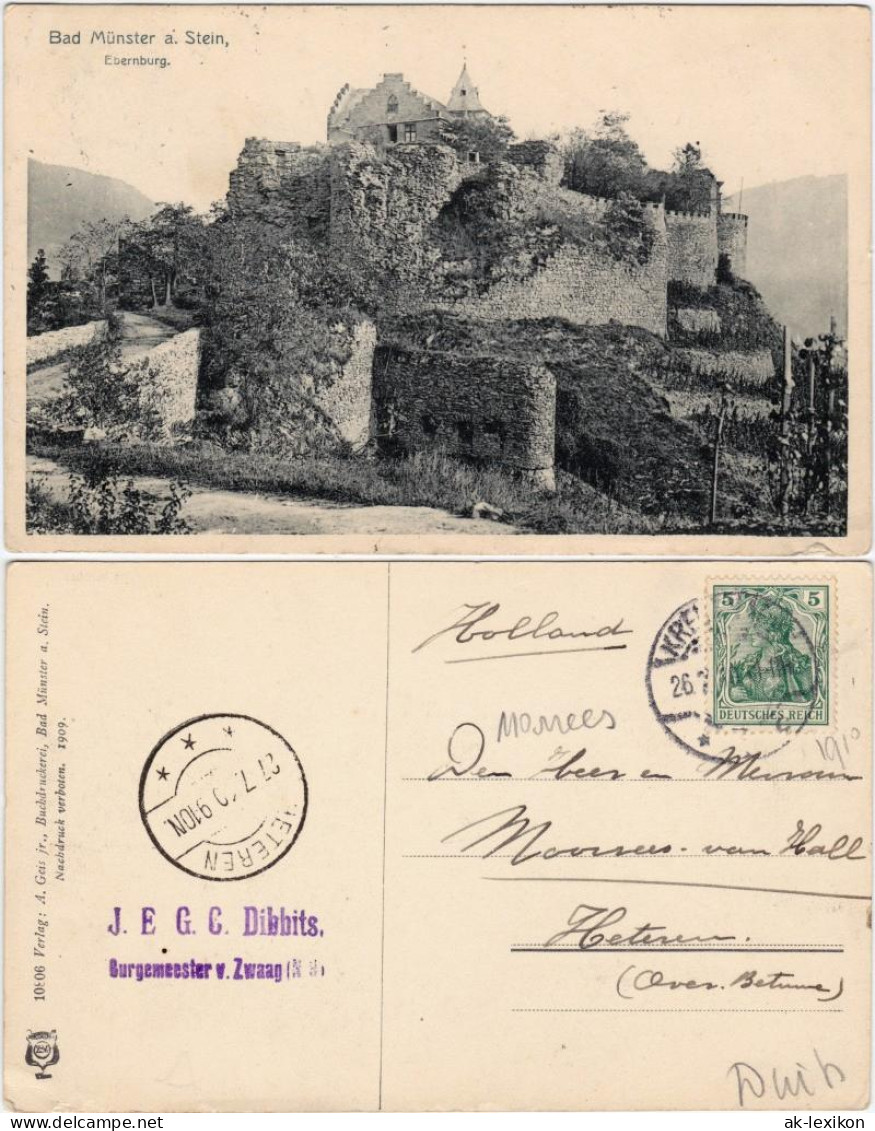 Bad Münster a. Stein,
Ebernburg.
10806 Verlag: A. Geis jr., Buchdruckerei, Bad Münster a. Stein.
Nachdruck verboten. 1909.
Holland
5 5
DEUTSCHES REICH
KRE
26.
1910
27.7.10 9-10N.
HETEREN
J. E. G. C. Dibbits,
Burgemeester v. Zwaag (N H)
Den Heer en Mevrouw
Moorrees - van Hall
Heteren.
(Over. Betuwe)
ak-lexikon